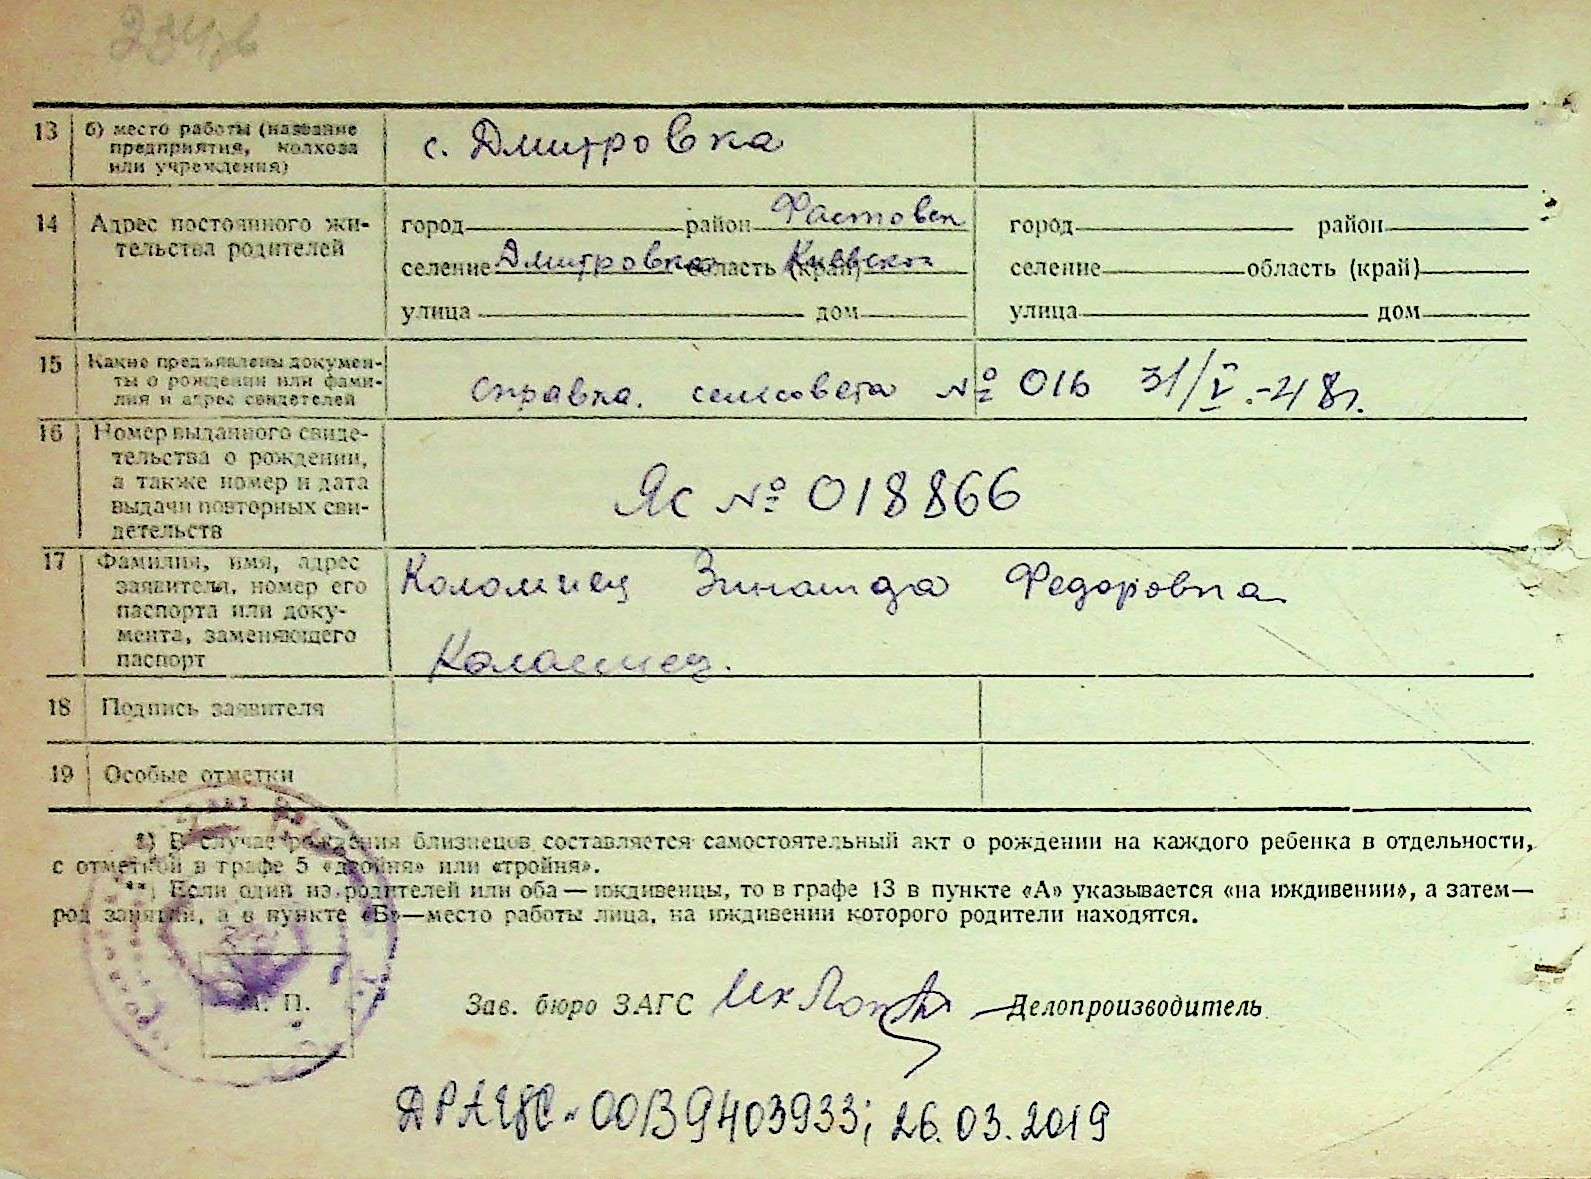 13 б) место работы (название
предприятия, колхоза
или учреждения)
с. Дмитровка
14 Адрес постоянного жи-
тельства родителей
город район Фастовск город район
селение Дмитровка область (край) Киевская селение область (край)
улица дом улица дом
15 Какие предъявлены докумен-
ты о рождении или фами-
лия и адрес свидетелей
справка сельсовета № 016 31/V.-48г.
16 Номер выданного свиде-
тельства о рождении,
а также номер и дата
выдачи повторных сви-
детельств
Яс № 018866
17 Фамилия, имя, адрес
заявителя, номер его
паспорта или доку-
мента, заменяющего
паспорт
Коломиец Зинаида Федоровна
Коломиец.
18 Подпись заявителя
19 Особые отметки
*) В случае рождения близнецов составляется самостоятельный акт о рождении на каждого ребенка в отдельности,
с отметкой в графе 5 «двойня» или «тройня».
**) Если один из родителей или оба — иждивенцы, то в графе 13 в пункте «А» указывается «на иждивении», а затем—
род занятий, а в пункте «Б»—место работы лица, на иждивении которого родители находятся.
М. П.
Зав. бюро ЗАГС Делопроизводитель
ДРАЦС - 00139403933; 26.03.2019